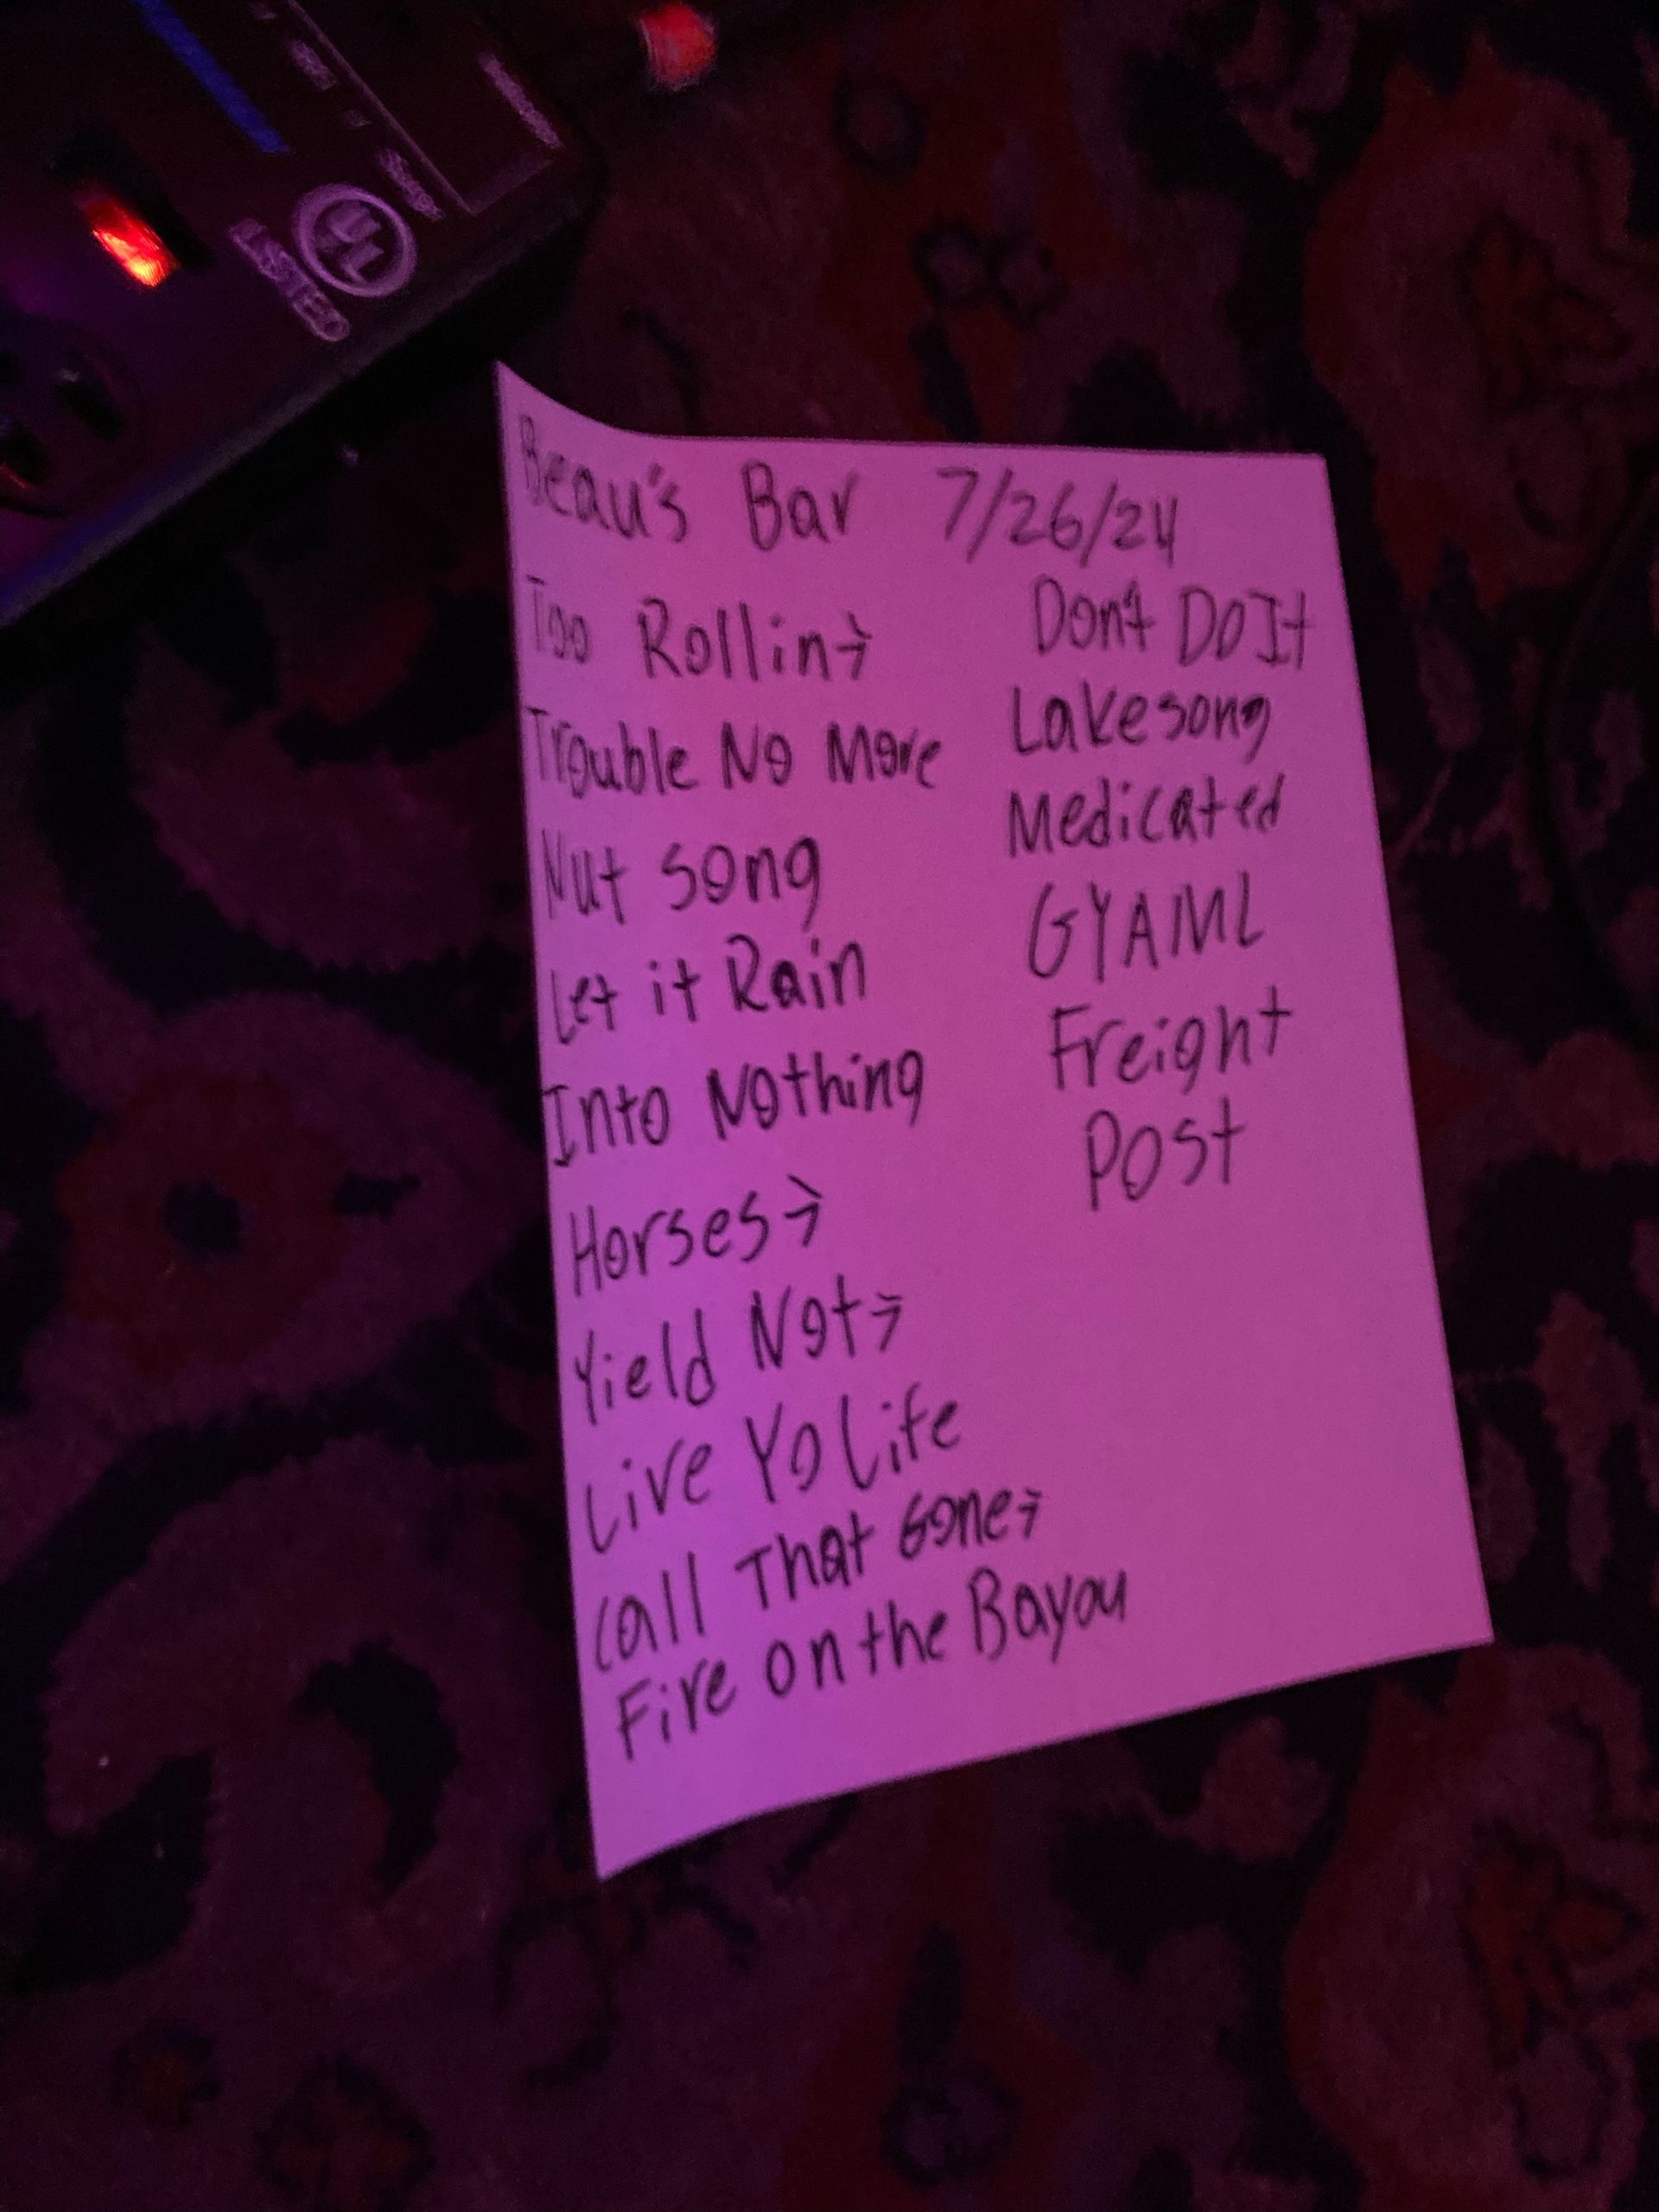 UL
LISTED
Beau's Bar 7/26/24
Too Rollin→
Trouble No More
Nut Song
Let it Rain
Into Nothing
Horses→
Yield Not→
Live Yo Life
Call That Gone→
Fire on the Bayou
Don't Do It
Lakesong
Medicated
GYAML
Freight
Post